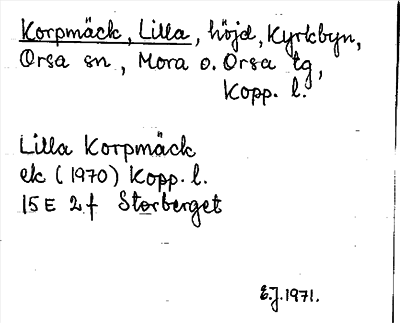 Korpmäck, Lilla, höjd, Kyrkbyn,
Orsa sn, Mora o. Orsa tg,
Kopp. l.
Lilla Korpmäck
ek (1970) Kopp. l.
15 E 2 f Storberget
E.J. 1971.